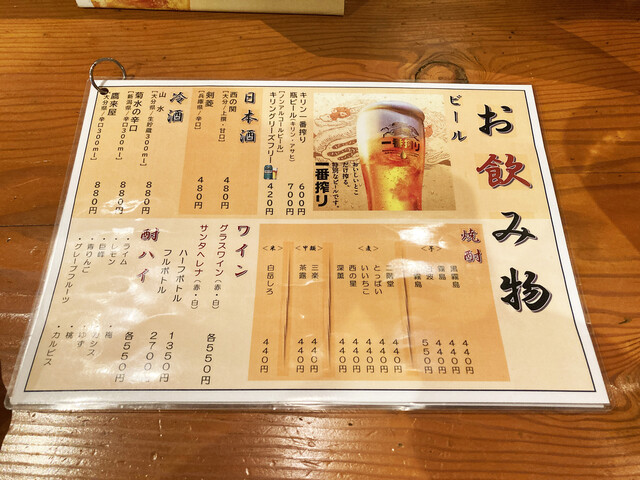 お飲み物
ビール
キリン 一番搾り 600円
瓶ビール(キリン・アサヒ) 700円
[ノンアルコールビール]
キリングリーンズフリー 420円
おいしいとこ
だけ搾る。
特別なビールです。
一番搾り
一番搾り
日本酒
西の関 480円
[大分/上撰・甘口]
剣菱 480円
[兵庫県/辛口]
冷酒
山水 880円
[大分県/生貯蔵300ml]
菊水の辛口 880円
[新潟県/辛口300ml]
鷹来屋 880円
[大分県/辛口300ml]
焼酎
<芋>
黒霧島 440円
霧島 440円
霧島 550円
<麦>
二階堂 440円
とっぱい 440円
いいちこ 440円
西の星 440円
深薫 440円
<甲類>
三楽 440円
茶露 440円
<米>
白岳しろ 440円
ワイン
グラスワイン(赤・白) 各550円
サンタヘレナ(赤・白)
ハーフボトル 1350円
フルボトル 2700円
酎ハイ 各550円
・ライム ・梅
・レモン ・カシス
・巨峰 ・ゆず
・青りんご ・桃
・グレープフルーツ ・カルピス